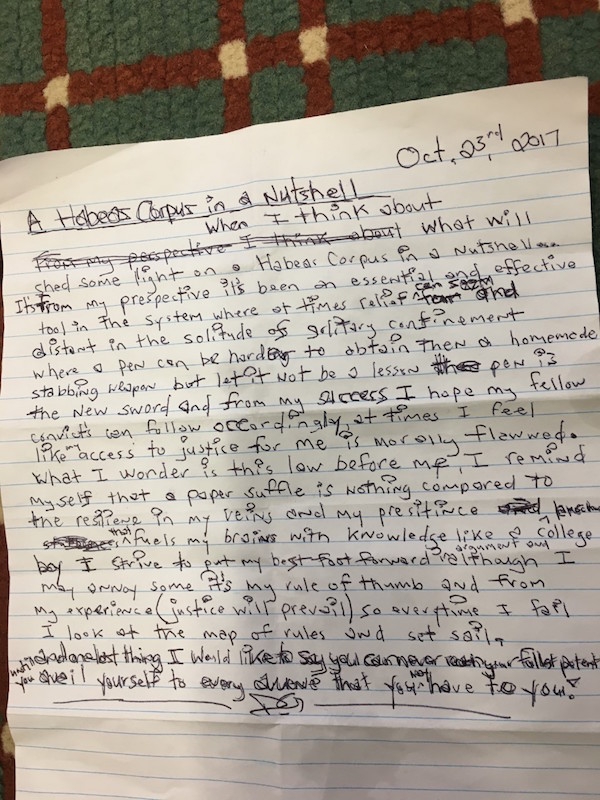 Oct. 23rd, 2017
A Habeas Corpus in a Nutshell
When I think about
From my perspective I think about what will
shed some light on a Habeas Corpus in a Nutshell...
It's from my prespective it's been an essential and effective
tool in the system where at times relief can seem and
distant in the solitude of solitary confinement
where a pen can be harder to obtain then a homemade
stabbing weapon but let it not be a lesson the pen is
the new sword and from my success I hope my fellow
convicts can follow accordingly, at times I feel
like access to justice for me is morally flawwed.
What I wonder is this law before me, I remind
myself that a paper suffle is nothing compared to
the resiliene in my veins and my presitince
that infuels my brains with knowledge like a college
boy I strive to put my best foot forward argument and although I
may annoy some it's my rule of thumb and from
my experience (justice will prevail) so everytime I fail
I look at the map of rules and set sail,
and one last thing I would like to say you can never reach your fullest potent
until you avail yourself to every avenue that you not have to you.